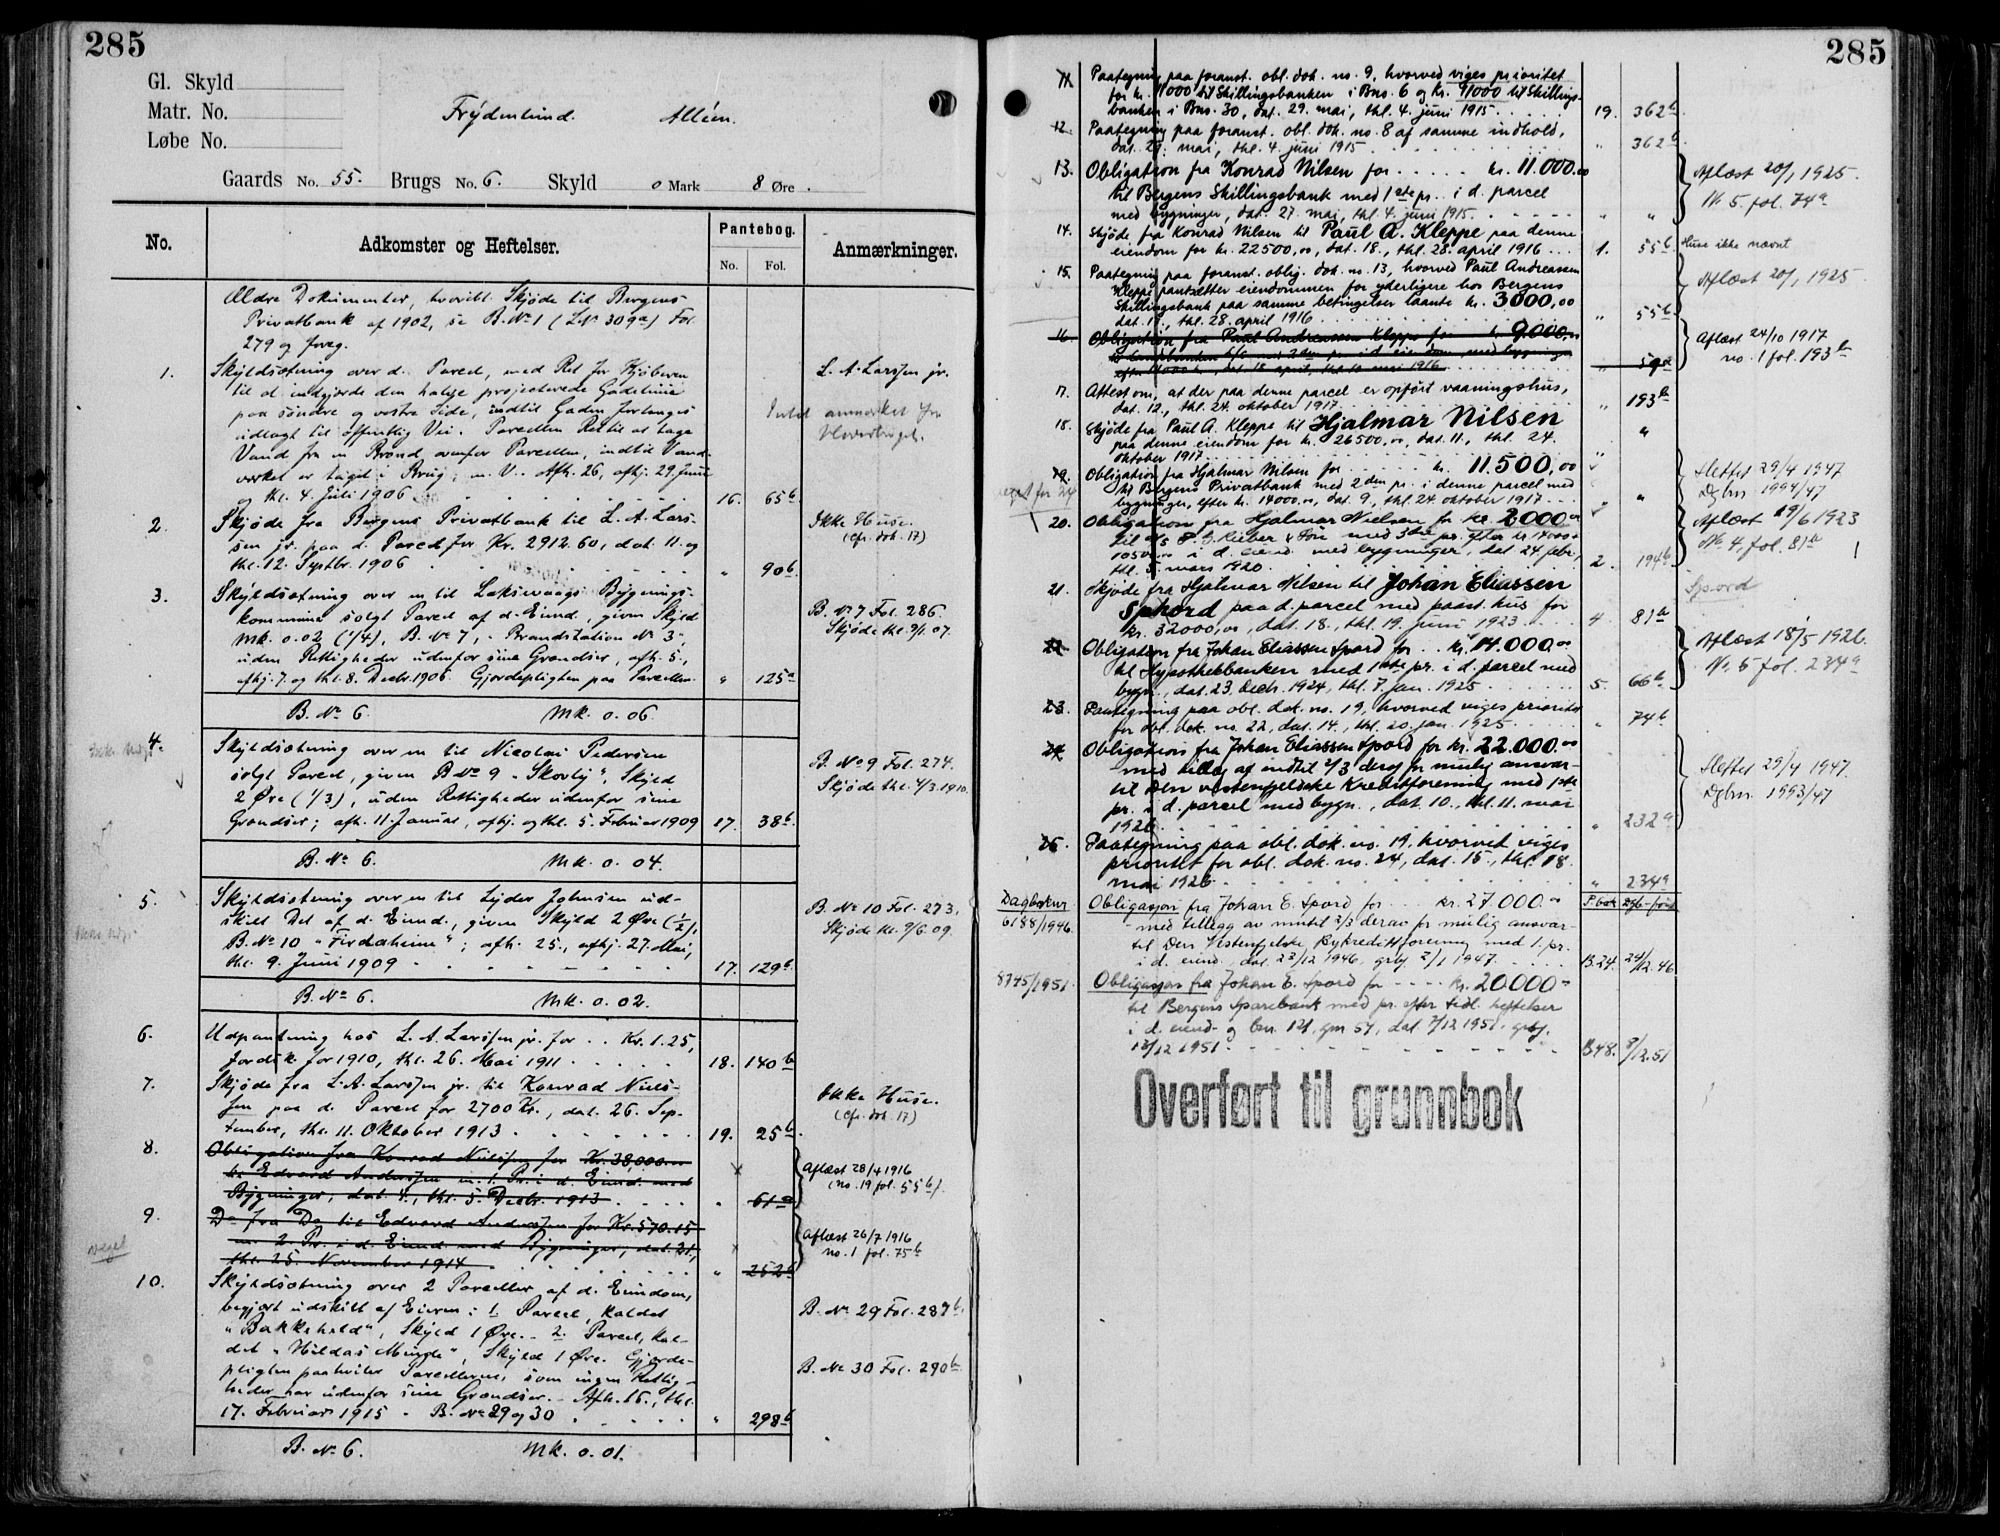 285
Gl. Skyld
Matr. No.
Løbe No.
Frydenlund. Alléen.
Gaards No. 55. Brugs No. 6. Skyld 0 Mark 8 Øre.
No. Adkomster og Heftelser. Pantebog. No. Fol. Anmærkninger.
Ældre Dokumenter, hvoribl. Skjøde til Bergens
Privatbank af 1902, se B.No 1 (LNo 309a) Fol.
279 og foreg.
1. Skyldsætning over d. Parcel, med Ret for Kjøberen L. A. Larssen jr.
til at indgjærde den halve projecterede Gadelinie
paa søndre og vestre Side, indtil Gaden forlanges
udlagt til offentlig Vei. Parcellen Ret til at tage
Vand fra en Brønd ovenfor Parcellen, indtil Vand-
værket er taget i Brug, m. V. Afh. 26, afhj. 29 Juni
og thl. 4. Juli 1906 16. 65b
anmerket fra
Hovedbøgel.
2. Skjøde fra Bergens Privatbank til L. A. Lars- Ikke Huse.
sen jr. paa d. Parcel for Kr. 2912.60, dat. 11. og (cfr. dok. 17)
thl. 12. Septbr. 1906 " 90b
3. Skyldsætning over en til Laksevaags Bygnings-
kommune solgt Parcel af d. Eiend., given Skyld B. No 7 Fol. 286.
Mk. 0.02 (1/4), B. No 7, "Brandstation No 3", Skjøde thl. 9/1. 07.
uden Rettigheder udenfor sine Grændser, afh. 5.,
afhj. 7. og thl. 8. Decbr. 1906. Gjerdepligten paa Parcellen. " 125a
B. No 6. Mk. 0.06.
4. Skyldsætning over en til Nicolai Pedersen
solgt Parcel, given B No 9 "Skovly", Skyld B. No 9 Fol. 274.
2 Øre (1/3), uden Rettigheder udenfor sine Skjøde thl. 4/3 1910.
Grændser; afh. 11. Januar, afhj. og thl. 5. Februar 1909 17. 38b
B. No 6. Mk. 0.04.
5. Skyldsætning over en til Lyder Johnsen ud-
skilt Del af d. Eiend., given Skyld 2 Øre (1/2), B. No 10 Fol. 273.
B. No 10 "Firdaheim"; afh. 25., afhj. 27. Mai, Skjøde thl. 9/6. 09.
thl. 9. Juni 1909 17. 129b
B. No 6. Mk. 0.02.
6. Udpantning hos L. A. Larssen jr. for Kr. 1.25,
Jordsk. for 1910, thl. 26. Mai 1911 18. 140b
7. Skjøde fra L. A. Larssen jr. til Konrad Niels- Ikke Huse.
sen paa d. Parcel for 2700 Kr., dat. 26. Sep- (cfr. dok. 17)
tember, thl. 11. Oktober 1913 19. 25b
8. Obligation fra Konrad Nielsen for Kr. 38000.00 Aflæst 28/4 1916
til Edvard Andersen m. 1. Pr. i d. Eiend. med (no. 19 fol. 55b).
Bygninger, dat. 4., thl. 5. Decbr. 1913 " 61a
9. Do fra Do til Edvard Andersen for Kr. 570.15 Aflæst 26/7 1916
m. 2. Pr. i d. Eiend med Bygninger, dat. 21., no. 1 fol. 75b
thl. 25. November 1914 " 252b
10. Skyldsætning over 2 Parceller af d. Eiendom,
begjært udskilt af Eieren: 1. Parcel, kaldet B. No 29 Fol. 289b.
"Bakkeheld", Skyld 1 Øre. 2. Parcel, kal-
det "Hildas Minde", Skyld 1 Øre. Gjerde- B. No 30 Fol. 290b.
pligten paahviler Parcellerne, som ingen Rettig-
heder har udenfor sine Grændser. Afh. 16., thl.
17. Februar 1915 - B. No 29 og 30 " 298b
B. No 6. Mk. 0.01.
285
11. Paategning paa foranst. obl. dok. no. 9, hvorved viges prioritet
for kr. 11000 til Skillingsbanken i Bno. 6 og kr. 9000 til Skillings-
banken i Bno. 30, dat. 29. mai, thl. 4. juni 1915 19. 362b
12. Paategning paa foranst. obl. dok. no. 8 af samme indhold,
dat. 29. mai, thl. 4. juni 1915 " 362b
13. Obligation fra Konrad Nilsen for kr. 11.000.00 Aflæst 20/1 1925.
til Bergens Skillingsbank med 1ste pr. i d. parcel No 5. fol. 74a
med bygninger, dat. 27. mai, thl. 4. juni 1915 " "
14. Skjøde fra Konrad Nilsen til Paul A. Kleppe paa denne
eiendom for kr. 22500,00, dat. 18., thl. 28. april 1916 1. 55b Huse ikke nævnt
15. Paategning paa foranst. oblig. dok. no. 13, hvorved Paul Andreassen Aflæst 20/1 1925.
Kleppe pantsætter eiendommen for yderligere hos Bergens
Skillingsbank paa samme betingelser laante kr. 3000,00
dat. 18., thl. 28. april 1916 " 55b
16. Obligation fra Paul Andreassen Kleppe for kr. 9000,00 Aflæst 24/10 1917
med 2den pr. i d. eiendom med bygninger no. 1 fol. 193b
efter 14000 kr., dat. 18 april, thl. 10 mai 1916 " 59a
17. Attest om, at der paa denne parcel er opført vaaningshus,
dat. 12., thl. 24. oktober 1917 " 193b
18. Skjøde fra Paul A. Kleppe til Hjalmar Nilsen
paa denne eiendom for kr. 26500,00, dat. 11., thl. 24. "
oktober 1917 "
19. Obligation fra Hjalmar Nilsen for kr. 11.500,00 Slettet 29/4 1947
til Bergens Privatbank med 2den pr. i denne parcel med Dgbnr. 1994/47
bygninger, efter kr. 14000,00, dat. 9., thl. 24. oktober 1917 " "
veget for 24
20. Obligation fra Hjalmar Nielsen for kr. 2000.00 Aflæst 19/6 1923
til A/s P. G. Rieber & Søn med 3die pr. efter kr 14000 + No. 4, fol. 81b
10500.00 i d. eiend. med bygninger, dat. 24. febr.,
thl. 5. mars 1920 2. 194b
21. Skjøde fra Hjalmar Nilsen til Johan Eliassen Spord
Spord paa d. parcel med paast. hus for
kr. 32000,00, dat. 18., thl. 19. juni 1923 4. 81b
22. Obligation fra Johan Eliassen Spord for kr. 14.000.00 Aflæst 18/5 1926.
til Hypothekbanken med 1ste pr. i d. parcel med No. 6 fol. 234a
bygn., dat. 23. Decb. 1924, thl. 7. jan. 1925 5. 66b
23. Paategning paa obl. dok. no. 19, hvorved viges prioritet
for obl. dok. no. 22, dat. 14., thl. 20. jan. 1925 " 74b
24. Obligation fra Johan Eliassen Spord for kr. 22.000.00 Slettet 29/4 1947.
med tillæg af indtil 2/3 deraf for mulig ansvar Dgbnr. 1993/47
til Den vestenfjeldske Kreditforening med 1ste
pr. i d. parcel med bygn., dat. 10., thl. 11. mai
1926 " 232a
25. Paategning paa obl. dok. no. 19, hvorved viges
prioritet for obl. dok. no. 24, dat. 15., thl. 18.
mai 1926 " 234a
Dagboknr Obligasjon fra Johan E. Spord for kr. 27.000.00 P.bok
6188/1946. med tillegg av inntil 2/3 derav for mulig ansvar
til Den Vestenfjelske Bykredittforening med 1. pr.
i d. eiend., dat. 23/12 1946, grbf. 2/1 1947. B.24. 24/12.46
8745/1951. Obligasjon fra Johan E. Spord for kr. 20.000
til Bergens Sparebank med pr. efter tidl. heftelser
i d. eiend. og bnr. 121, gnr 57, dat 7/12 1951, grbf.
13/12 1951 B48. 8/12.51
Overført til grunnbok